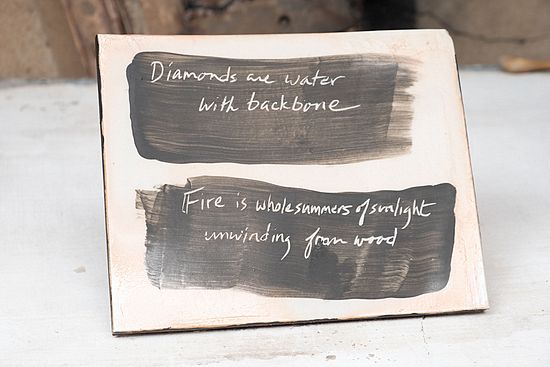 Diamonds are water
with backbone
Fire is whole summers of sunlight
unwinding from wood